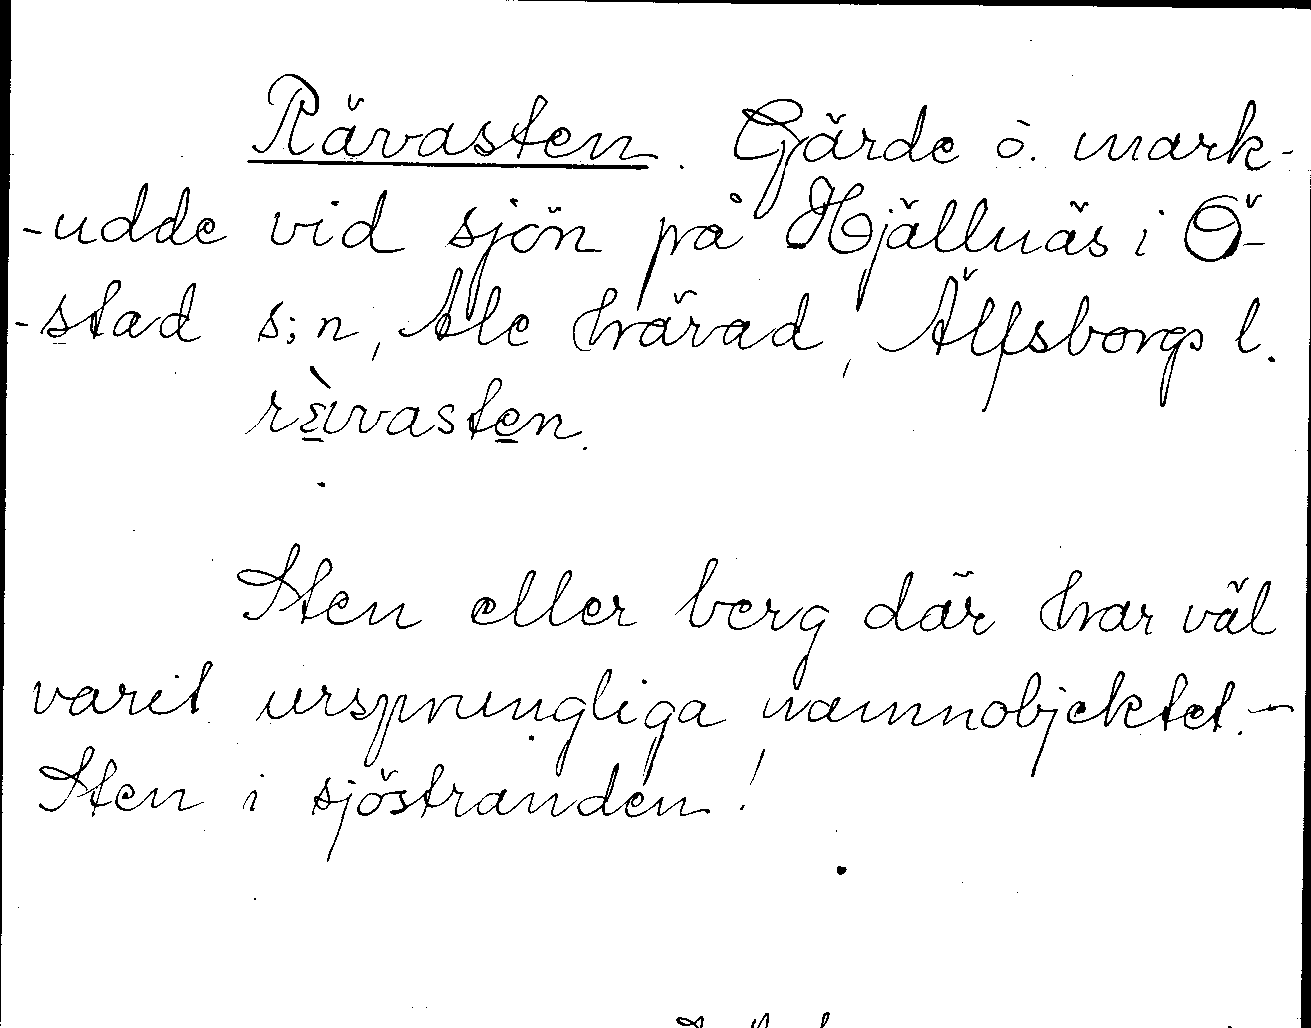 Rävasten. Gärde o. mark-
-udde vid sjön på Hjällnäs i Ö-
-stad s:n, Ale härad, Älfsborgs l.
rὲvasten.
Sten eller berg där har väl
varit ursprungliga namnobjektet. -
Sten i sjöstranden!